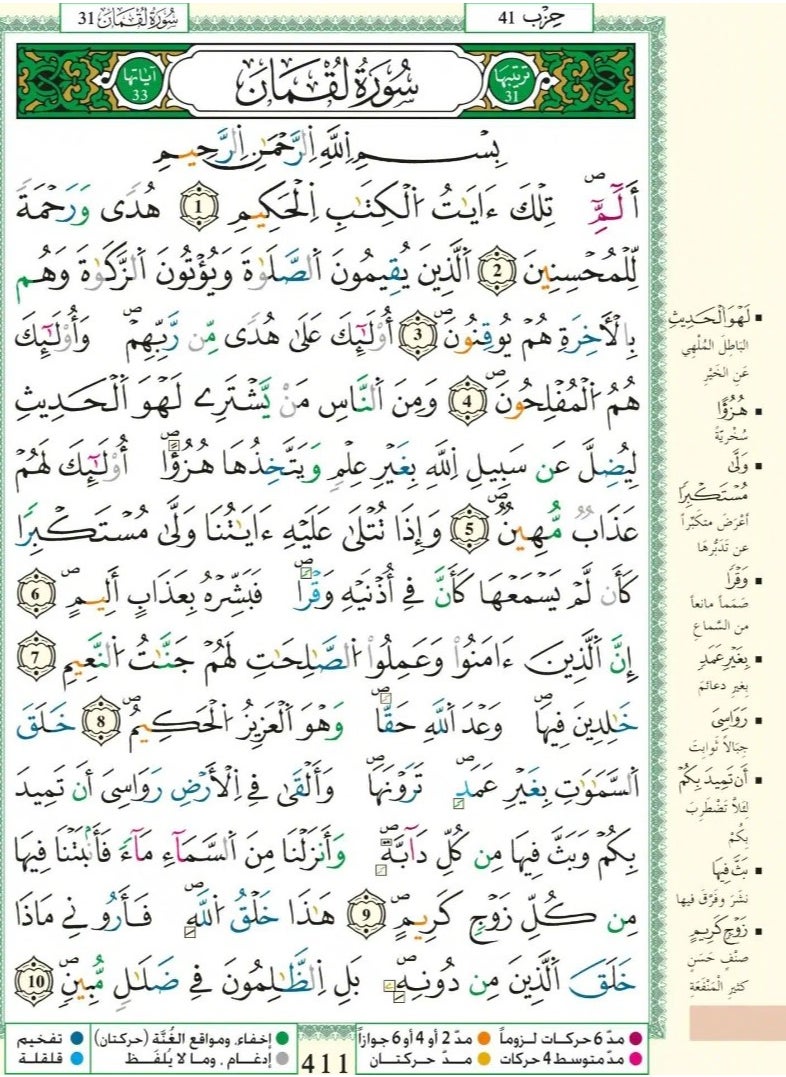 حِزْب 41
سُورَةُ لُقْمَانَ 31
تَرتيبُها 31
سُورَةُ لُقْمَانَ
آيَاتُها 33
بِسْمِ اِ۬للَّهِ اِ۬لرَّحْمَٰنِ اِ۬لرَّحِيمِ
أَلَٓمِّٓۖ تِلْكَ ءَايَٰتُ اُ۬لْكِتَٰبِ اِ۬لْحَكِيمِ 1 هُدىٗ وَرَحْمَةٗ
لِّلْمُحْسِنِينَ 2 اَ۬لذِينَ يُقِيمُونَ اَ۬لصَّلَوٰةَ وَيُؤْتُونَ اَ۬لزَّكَوٰةَ وَهُم
بِالْأَخِرَةِ هُمْ يُوقِنُونَۖ 3 أُوْلَٰٓئِكَ عَلَىٰ هُدىٗ مِّن رَّبِّهِمْۖ وَأُوْلَٰٓئِكَ
هُمُ اُ۬لْمُفْلِحُونَۖ 4 وَمِنَ اَ۬لنَّاسِ مَنْ يَّشْتَرِے لَهْوَ اَ۬لْحَدِيثِ
لِيُضِلَّ عَن سَبِيلِ اِ۬للَّهِ بِغَيْرِ عِلْمٖ وَيَتَّخِذُهَا هُزُؤاًۖ أُوْلَٰٓئِكَ لَهُمْ
عَذَابٞ مُّهِينٞۖ 5 وَإِذَا تُتْلَىٰ عَلَيْهِ ءَايَٰتُنَا وَلَّىٰ مُسْتَكْبِراٗ
كَأَن لَّمْ يَسْمَعْهَا كَأَنَّ فِے أُذْنَيْهِ وَقْراٗۖ فَبَشِّرْهُ بِعَذَابٍ أَلِيمٍۖ 6
إِنَّ اَ۬لذِينَ ءَامَنُواْ وَعَمِلُواْ اُ۬لصَّٰلِحَٰتِ لَهُمْ جَنَّٰتُ اُ۬لنَّعِيمِ 7
خَٰلِدِينَ فِيهَاۖ وَعْدَ اَ۬للَّهِ حَقّاٗۖ وَهُوَ اَ۬لْعَزِيزُ اُ۬لْحَكِيمُۖ 8 خَلَقَ
اَ۬لسَّمَٰوَٰتِ بِغَيْرِ عَمَدٖ تَرَوْنَهَاۖ وَأَلْقَىٰ فِے اِ۬لْأَرْضِ رَوَٰسِيَ أَن تَمِيدَ
بِكُمْ وَبَثَّ فِيهَا مِن كُلِّ دَآبَّةٖۖ وَأَنزَلْنَا مِنَ اَ۬لسَّمَآءِ مَآءٗ فَأَنۢبَتْنَا فِيهَا
مِن كُلِّ زَوْجٖ كَرِيمٍۖ 9 هَٰذَا خَلْقُ اُ۬للَّهِۖ فَأَرُونِے مَاذَا
خَلَقَ اَ۬لذِينَ مِن دُونِهِۦۖ بَلِ اِ۬لظَّٰلِمُونَ فِے ضَلَٰلٖ مُّبِينٖۖ 10
لَهْوَ اَ۬لْحَدِيثِ
البَاطِلَ المُلْهِي
عَنِ الخَيْرِ
هُزُؤاً
سُخْرِيَّةً
وَلَّىٰ
مُسْتَكْبِراٗ
أَعْرَضَ متكَبِّراً
عن تَدَبُّرِهَا
وَقْراٗ
صَمَماً مانعاً
من السَّماعِ
بِغَيْرِ عَمَدٖ
بِغيرِ دعائمَ
رَوَٰسِيَ
جبَالاً ثَوابِتَ
أَن تَمِيدَ بِكُمْ
لِئَلاَّ تَضْطَرِبَ
بِكُمْ
بَثَّ فِيهَا
نَشَرَ وفَرَّقَ فيها
زَوْجٖ كَرِيمٍ
صنْفٍ حَسَنٍ
كَثيرِ الْمَنْفَعَةِ
مدّ 6 حركات لـزوماً
مدّ 2 أو 4 أو 6 جوازاً
إخفاء، ومواقع الغُنَّة (حركتان)
تفخيم
مدّ متوسط 4 حركات
مـدّ حركتـان
إدغام ، وما لا يُلفَـظ
قلقلة
411